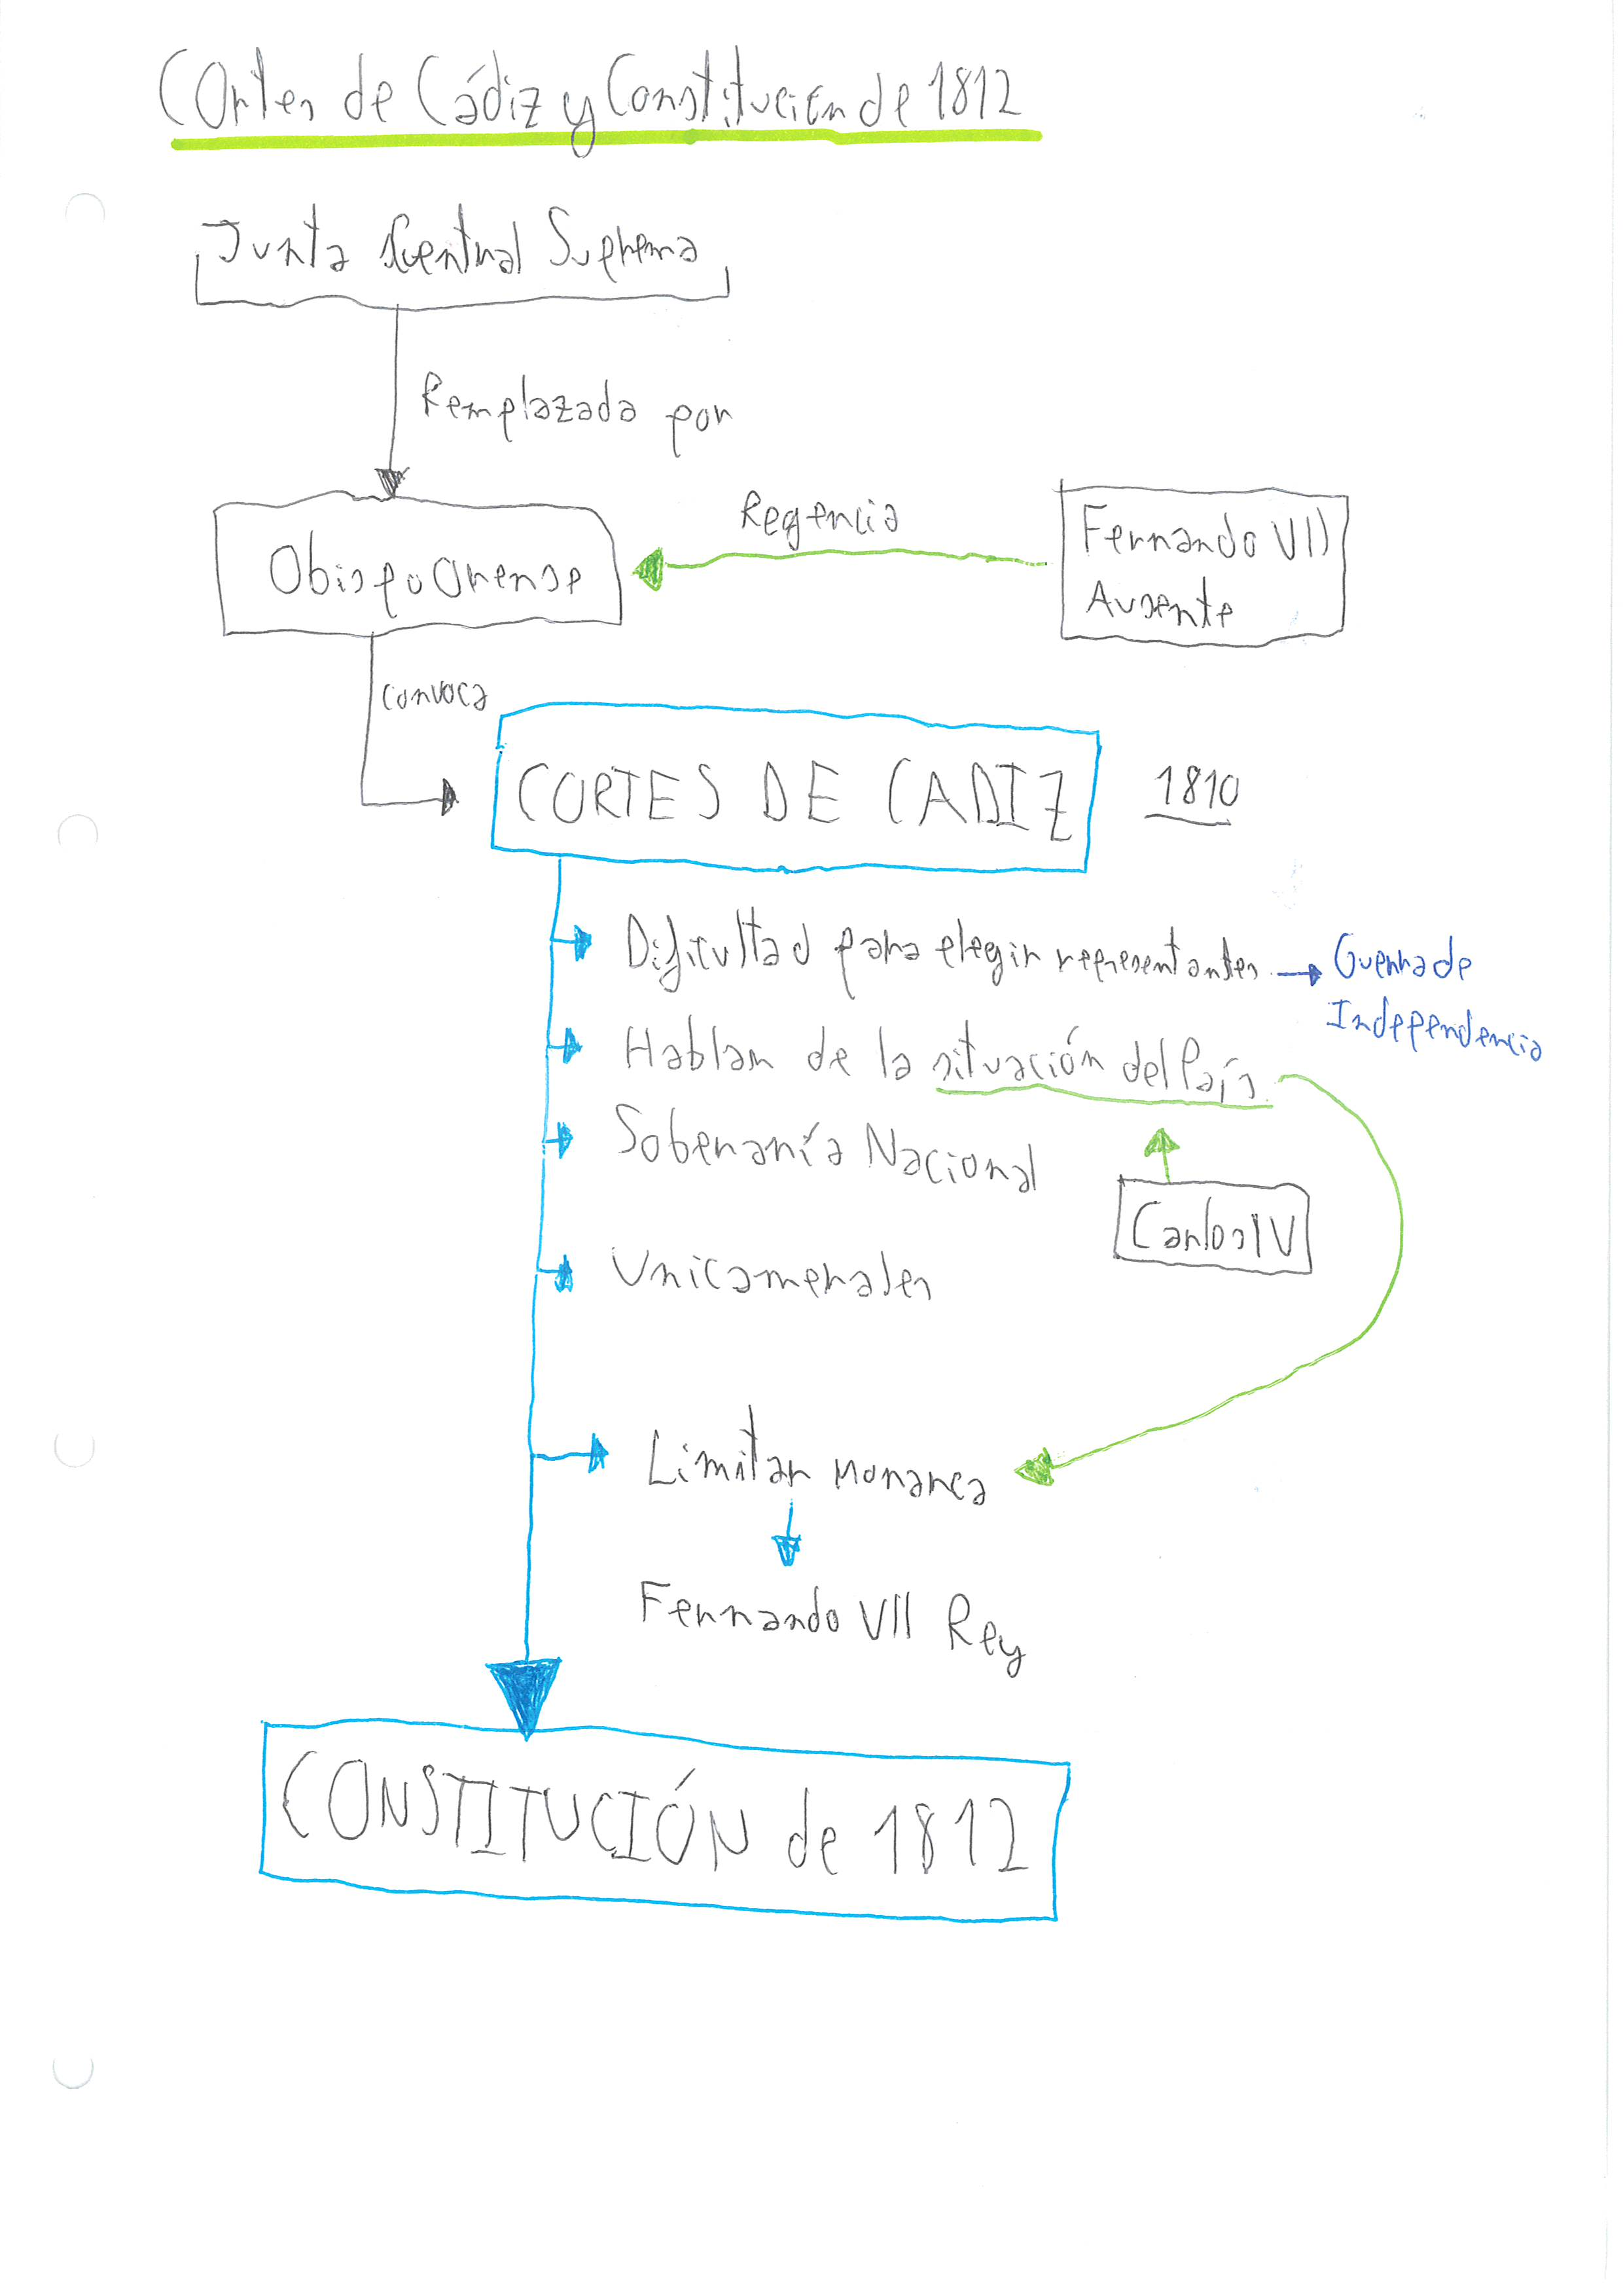 Cortes de Cádiz y Constitución de 1812
Junta Central Suprema
Remplazada por
Regencia
Fernando VII
Ausente
Obispo Orense
convoca
CORTES DE CADIZ
1810
Dificultad para elegir representantes → Guerra de
Independencia
Hablan de la situación del País
Soberanía Nacional
Carlos IV
Unicamerales
Limitar monarca
Fernando VII Rey
CONSTITUCIÓN de 1812